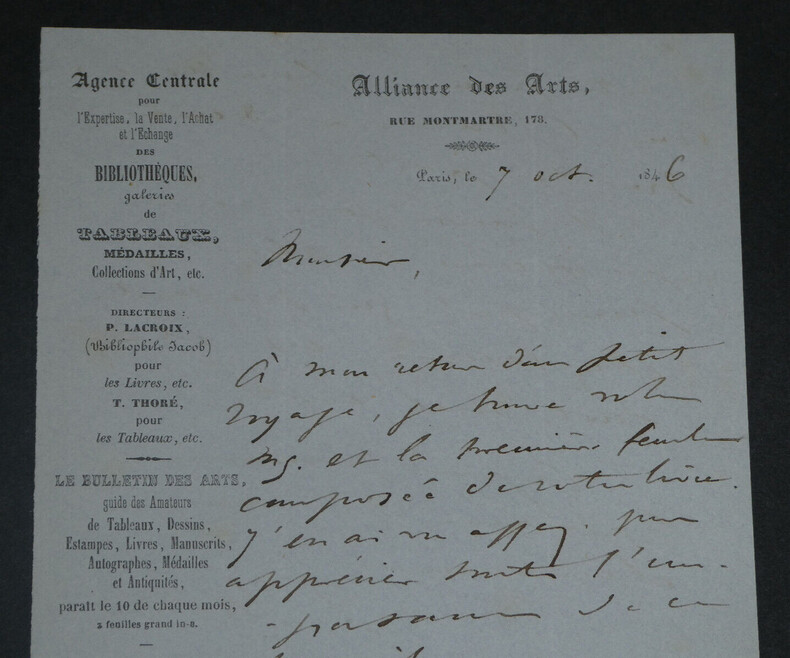 Agence Centrale
pour
l'Expertise, la Vente, l'Achat
et l'Echange
DES
BIBLIOTHÈQUES,
galeries
de
TABLEAUX,
MÉDAILLES,
Collections d'Art, etc.
DIRECTEURS :
P. LACROIX,
(Bibliophile Jacob)
pour
les Livres, etc.
T. THORÉ,
pour
les Tableaux, etc.
LE BULLETIN DES ARTS,
guide des Amateurs
de Tableaux, Dessins,
Estampes, Livres, Manuscrits,
Autographes, Médailles
et Antiquités,
paraît le 10 de chaque mois,
2 feuilles grand in-8.
Alliance des Arts,
RUE MONTMARTRE, 178.
Paris, le 7 oct. 1846
Monsieur,
À mon retour d'un petit
voyage, je trouve votre
ms. et la première feuille
composée de votre livre.
J'en ai vu assez pour
apprécier toute l'im-
-portance de ce